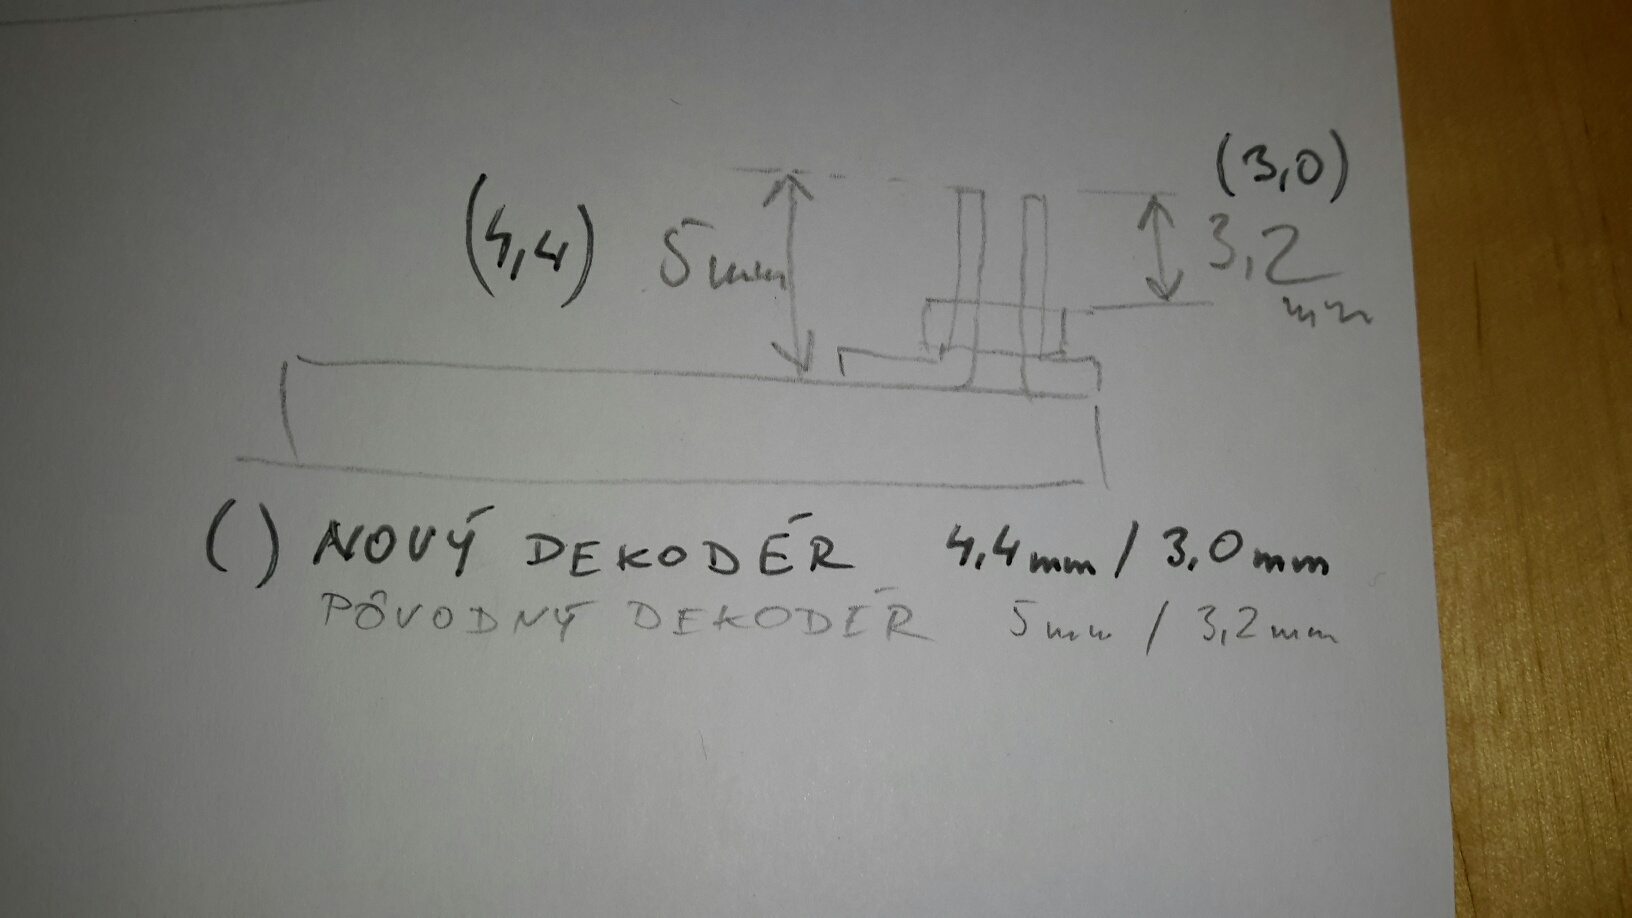 (3,0)
(4,4) 5mm 3,2
mm
( ) NOVÝ DEKODÉR 4,4mm / 3,0mm
PÔVODNÝ DEKODÉR 5mm / 3,2mm